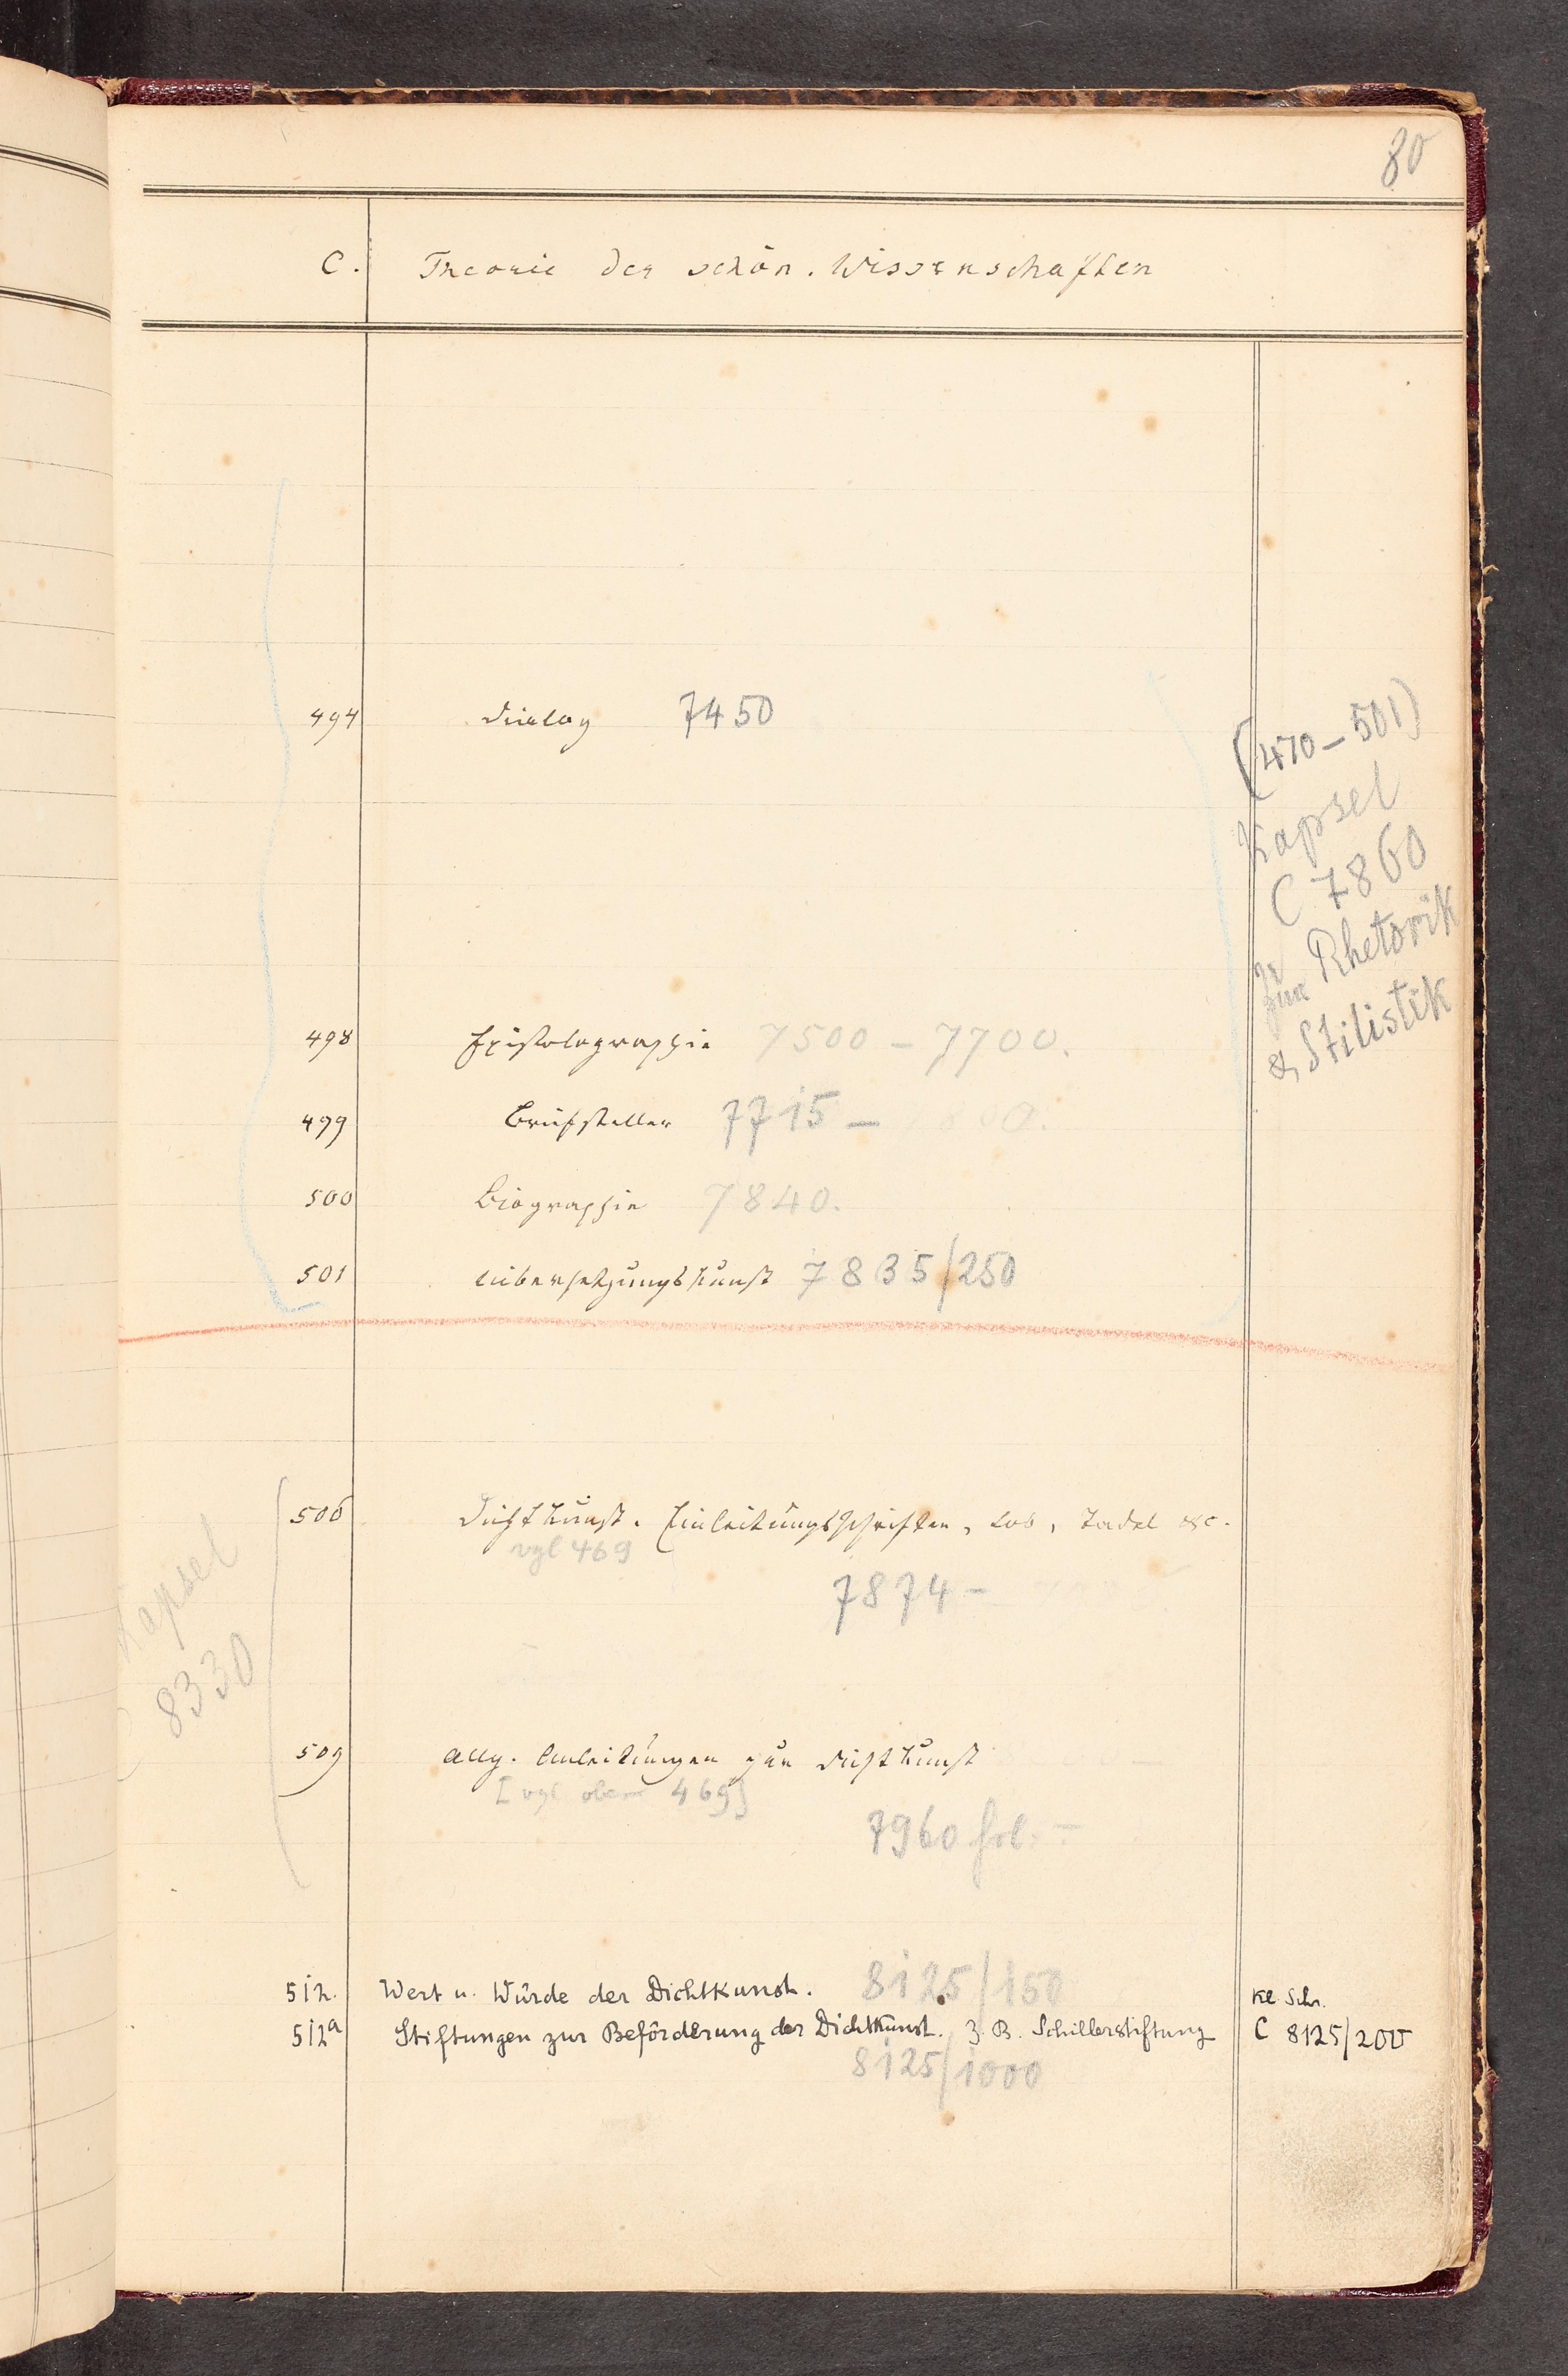 80
C. Theorie der schön. Wissenschaften
494 Dialog 7450
(470-501)
Kapsel
C 7860
zur Rhetorik
& Stilistik
498 Epistolographie 7500 - 7700.
499 Briefsteller 7715 -
500 Biographie 7840.
501 Uibersetzungskunst 7835/250
506 Dichtkunst. Einleitungsschriften, Lob, Tadel &c.
vgl 469
7874 -
Kapsel
8330
509 Allg. Anleitungen zur Dichtkunst
[vgl oben 469]
7960 fol. -
512. Wert u. Würde der Dichtkunst. 8125/150
Kl. Schr.
512a Stiftungen zur Beförderung der Dichtkunst. z. B. Schillerstiftung C 8125/200
8125/1000